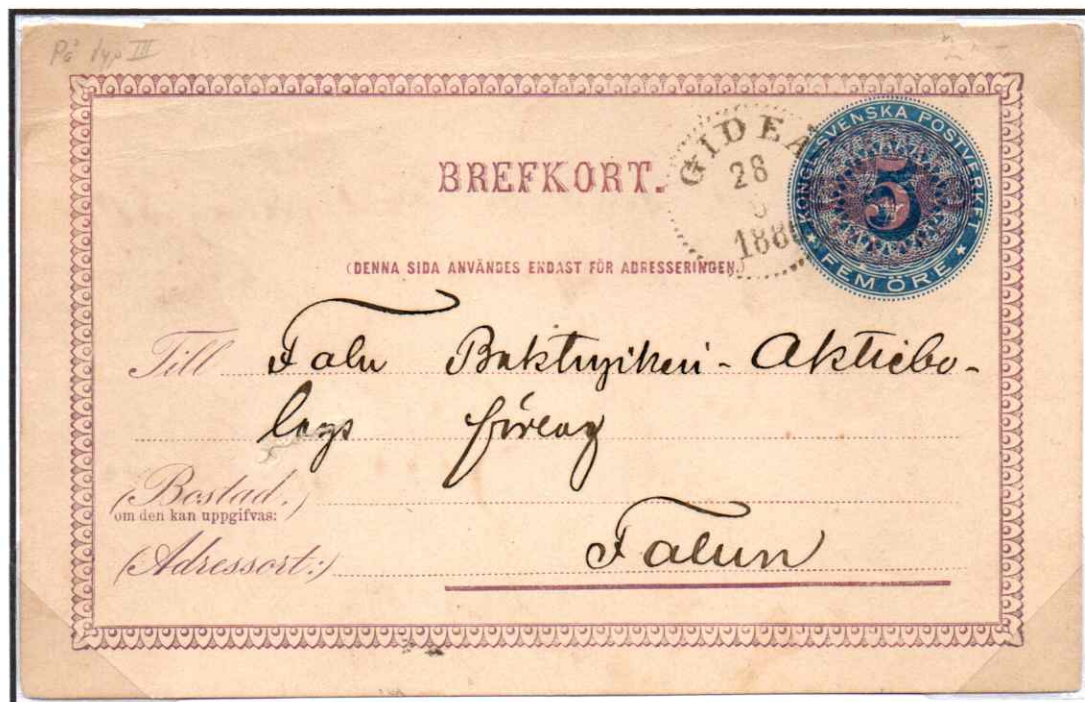 På typ III
BREFKORT.
GIDEÅ
28
188
KONGL. SVENSKA POSTVERKET
5
FEM ÖRE
(DENNA SIDA ANVÄNDES ENDAST FÖR ADRESSERINGEN.)
Till Falu Boktryckeri-Aktiebo-
lags förlag
(Bostad.)
om den kan uppgifvas:
(Adressort:) Falun